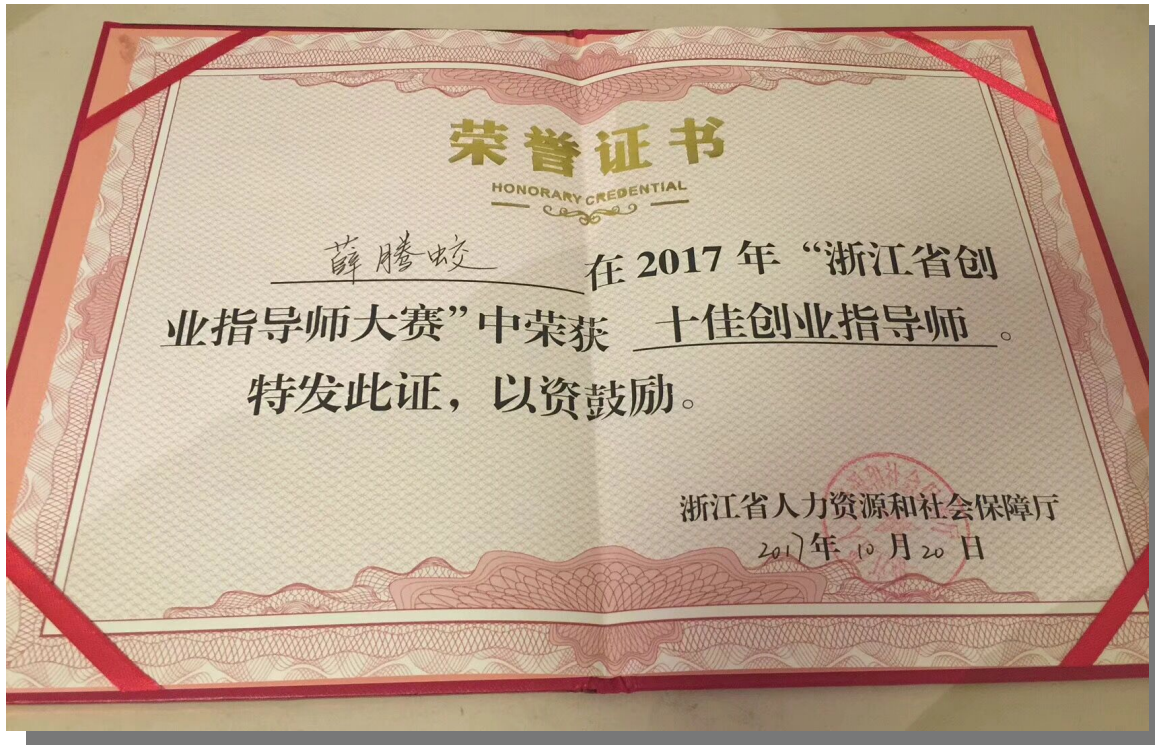 荣誉证书
HONORARY CREDENTIAL
薛腾蛟 在 2017 年 “浙江省创
业指导师大赛”中荣获 十佳创业指导师 。
特发此证，以资鼓励。
浙江省人力资源和社会保障厅
2017年 10 月 20 日